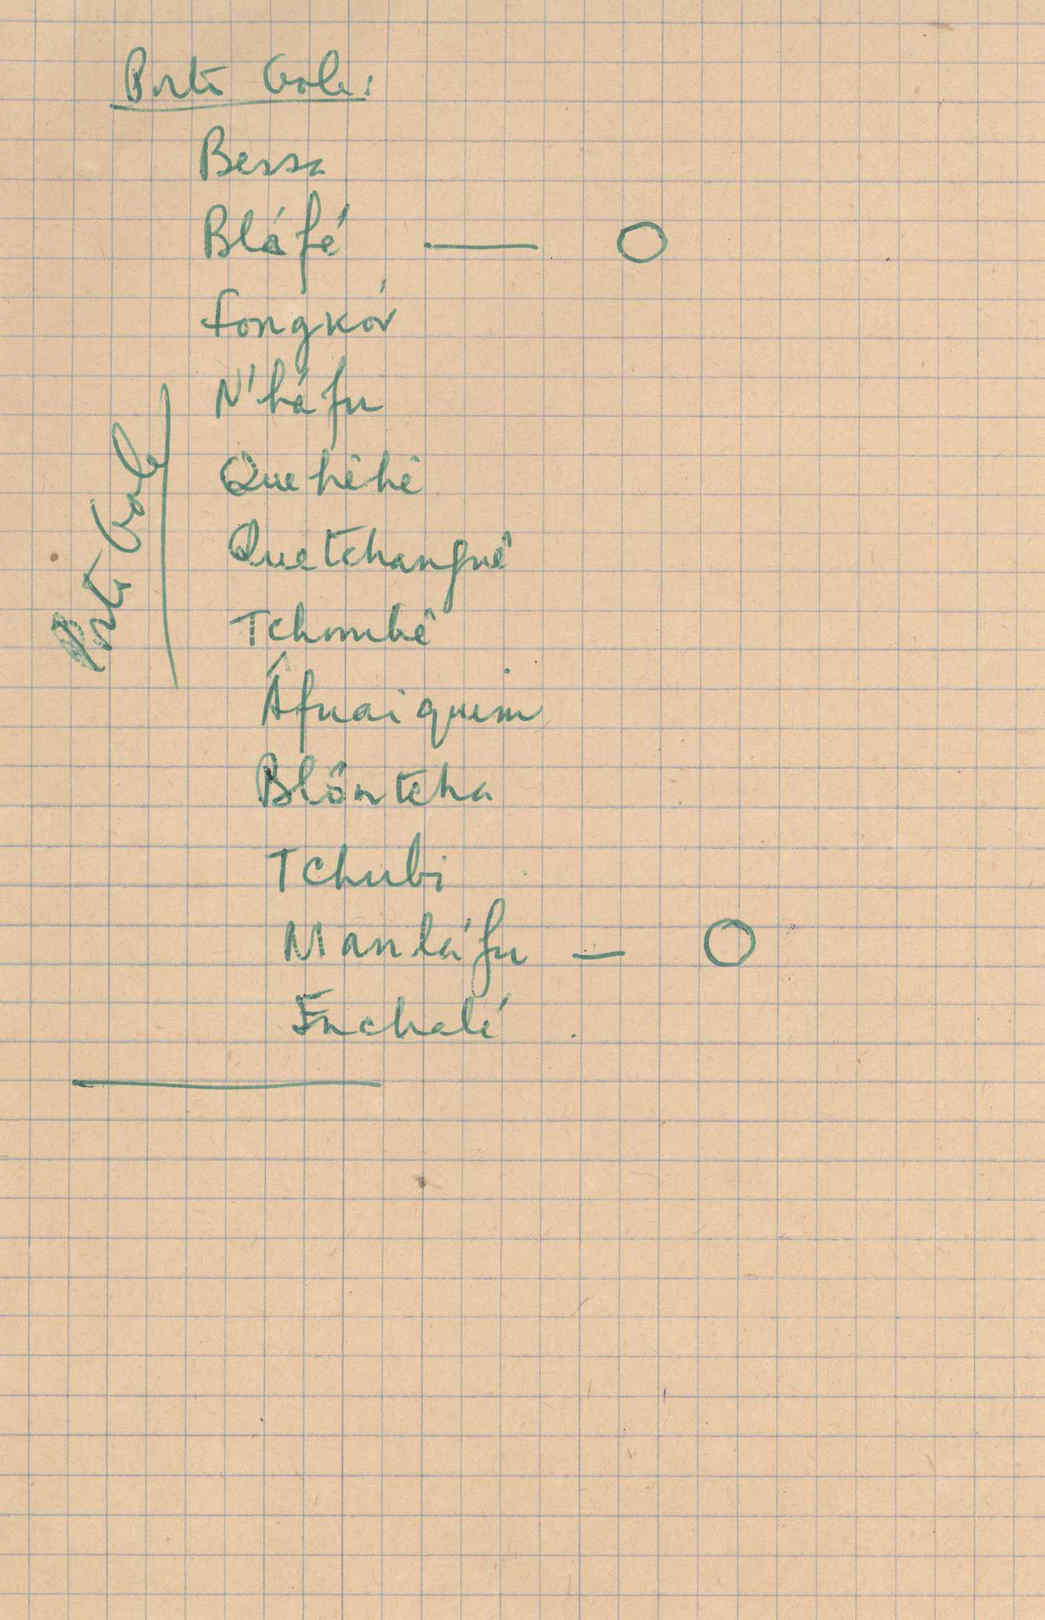 Porto Gole:
Bessa
Bláfé — O
Fongkór
N'háfu
Quehêhê
Quetchangué
Tchombê
Áfuaiquim
Blôntcha
Tchubi
Manláfu — O
Enchalé
Porto Gole